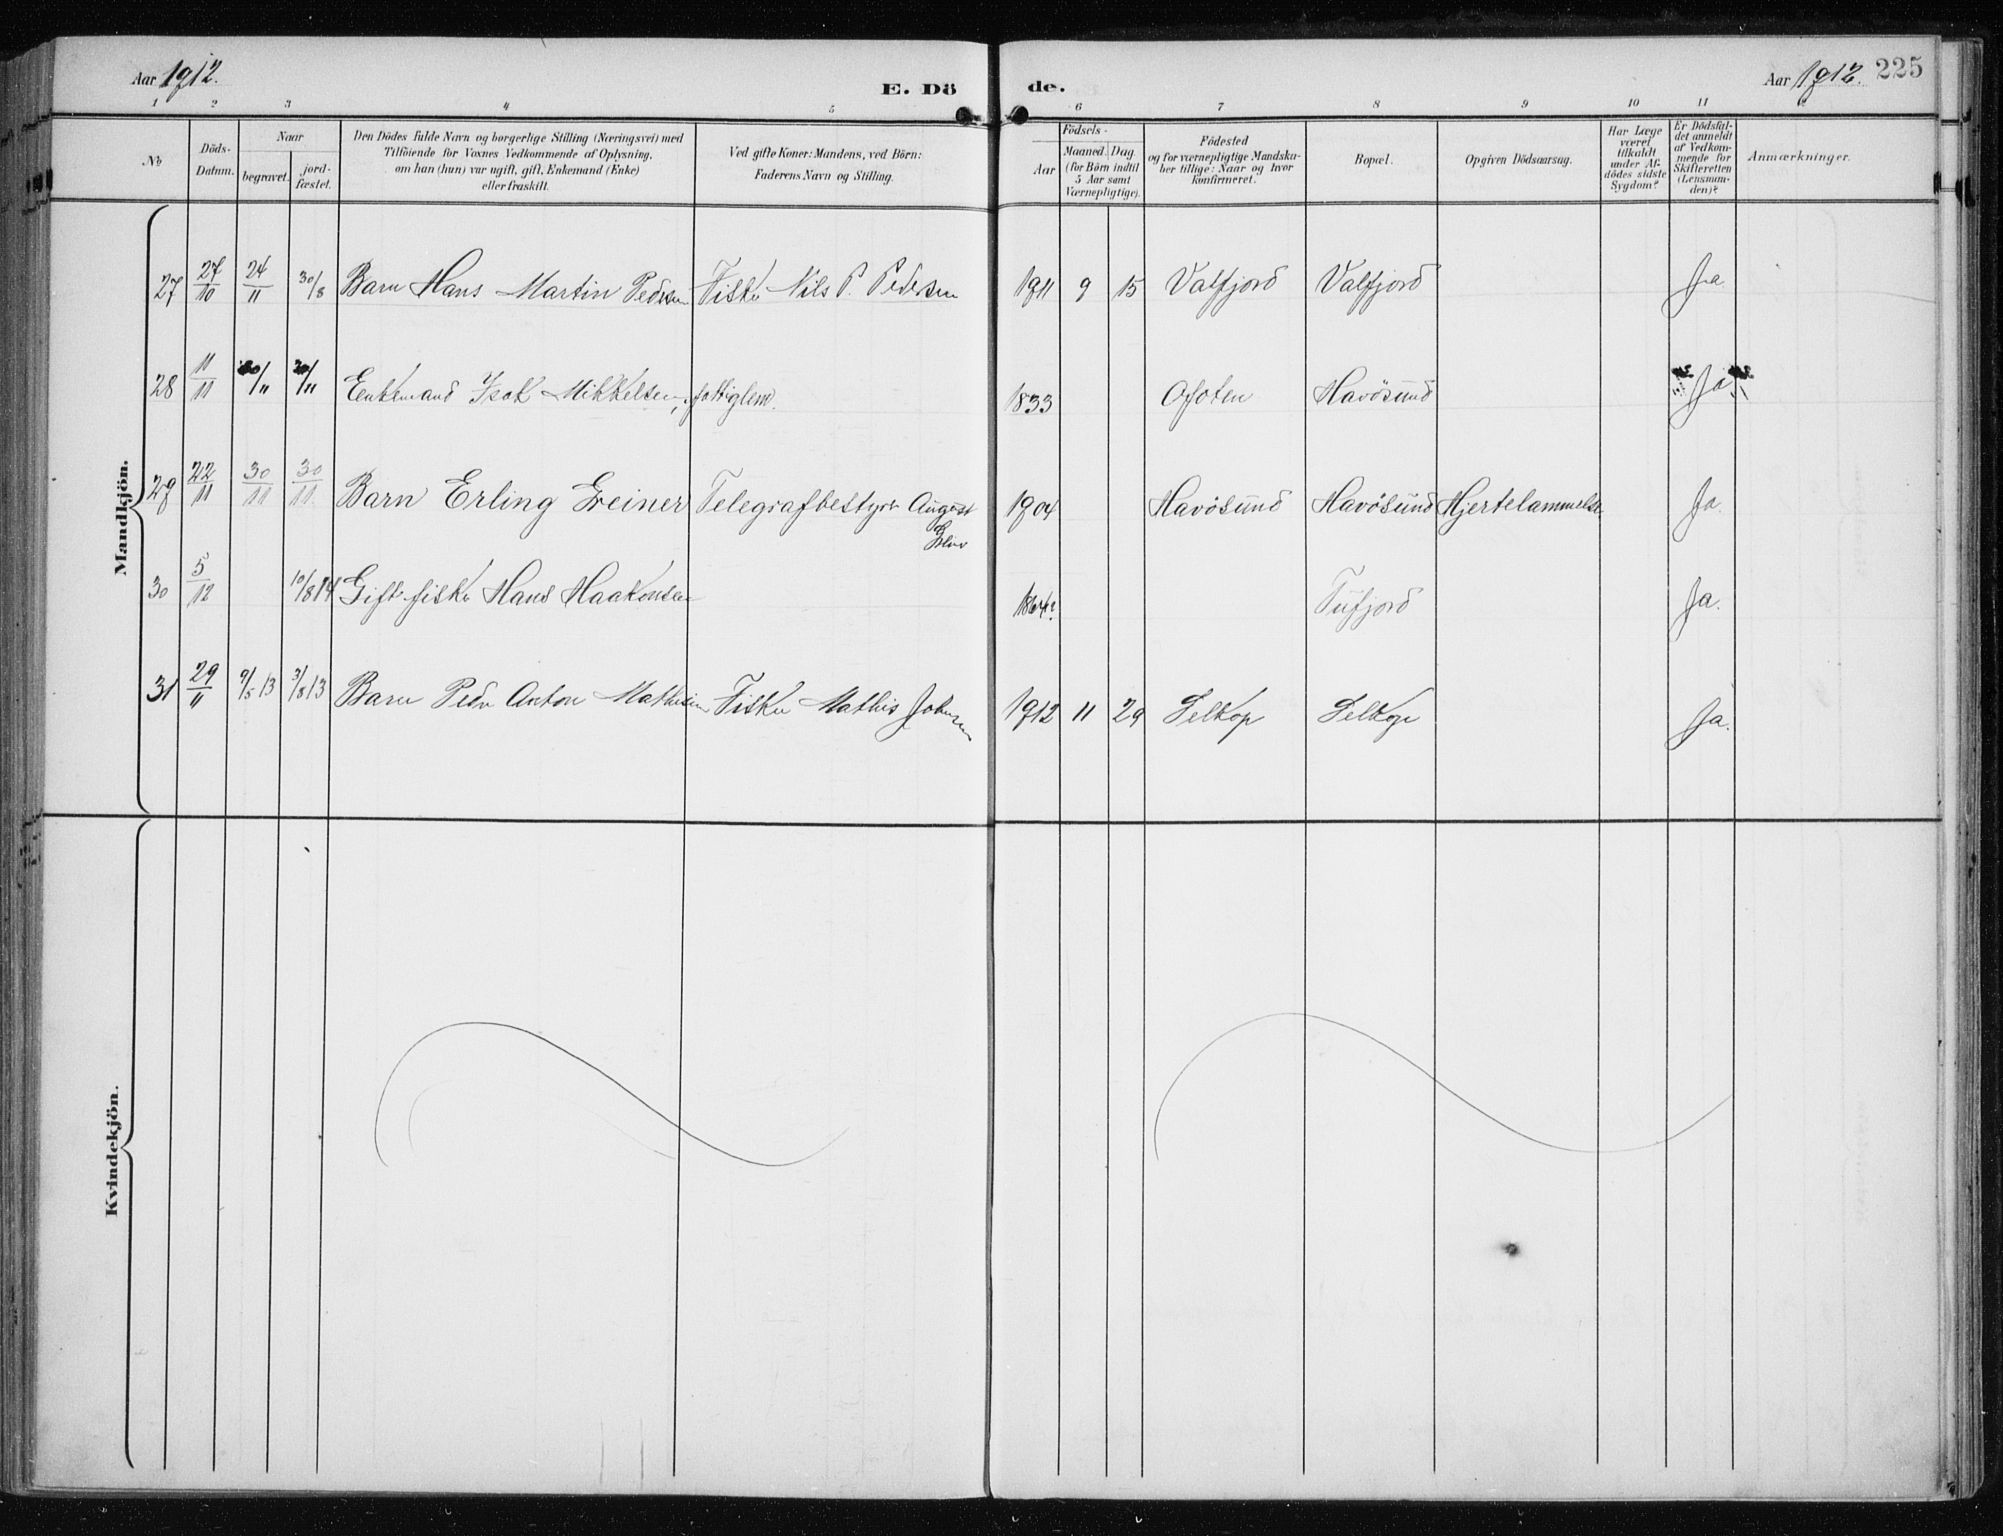 Aar 1912.
E. Dö
de.
Aar 1912.
225
1 2 3 4 5
6 7 8 9 10 11
No
Döds-
Datum.
Naar
begravet.
jord-
fæstet.
Den Dödes fulde Navn og borgerlige Stilling (Næringsvei) med
Tilföiende for Voxnes Vedkommende af Oplysning,
om han (hun) var ugift, gift, Enkemand (Enke)
eller fraskilt.
Ved gifte Koner: Mandens, ved Börn:
Faderens Navn og Stilling.
Födsels-
Aar
Maaned. Dag.
(for Börn indtil
5 Aar samt
Værnepligtige).
Födested
og for værnepligtige Mandska-
ber tillige: Naar og hvor
konfirmeret.
Bopæl.
Opgiven Dödsaarsag.
Har Læge
været
tilkaldt
under Af-
dödes sidste
Sygdom?
Er Dödsfal-
det anmeldt
af Vedkom-
mende for
Skifteretten
(Lensman-
den)?
Anmærkninger.
Mandkjön.
27 27/10 24/11 30/8 Barn Hans Martin Pedersen Fisker Nils P. Pedersen 1911 9 15 Valfjord Valfjord Ja
28 11/11 30/11 30/11 Enkemand Isak Mikkelsen, fattiglem. 1833 Ofoten Havösund Ja
29 22/11 30/11 30/11 Barn Erling Greiner Telegrafbestyrer August 1904 Havösund Havösund Hjertelammelse Ja.
30 5/12 10/8 14 Gift fisker Hans Haakonsen 1864? Tufjord Ja.
31 29/11 9/5 13 3/8 13 Barn Peder Anton Mathisen Fisker Mathis Johnsen 1912 11 29 Selkop Selkop Ja.
Kvindekjön.